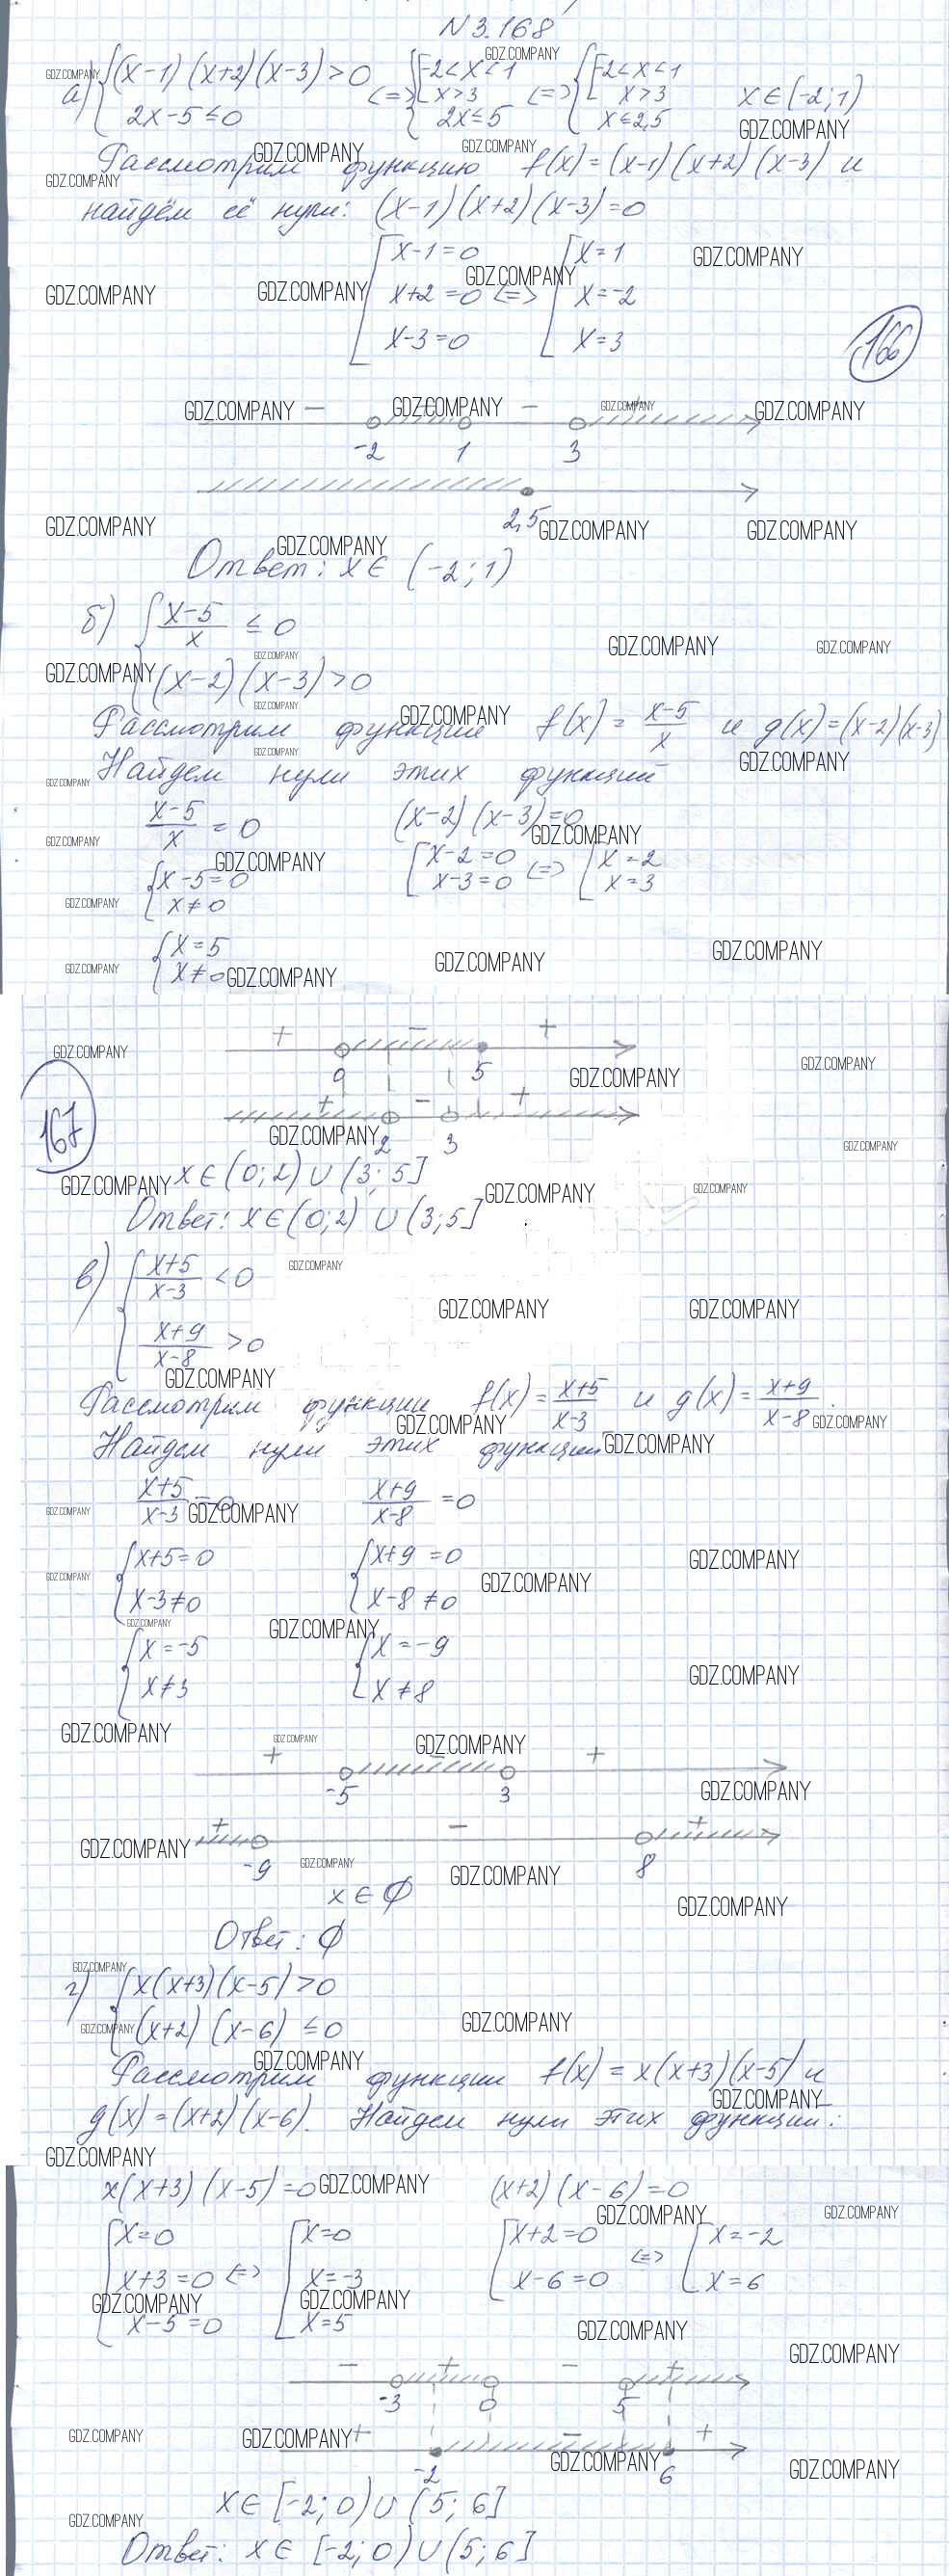 N 3.168
а) { (x-1)(x+2)(x-3)>0 <=> { [ -2<x<1 <=> { [ -2<x<1
x>3 x>3 x∈(-2;1)
2x-5≤0 2x≤5 x≤2,5
Рассмотрим функцию f(x)=(x-1)(x+2)(x-3) и
найдём её нули: (x-1)(x+2)(x-3)=0
[ x-1=0 [ x=1
x+2=0 <=> x=-2
x-3=0 x=3
166
− − +
-2 1 3
2,5
Ответ: x∈(-2;1)
б) { (x-5)/x ≤ 0
(x-2)(x-3)>0
Рассмотрим функции f(x)=(x-5)/x и g(x)=(x-2)(x-3)
Найдем нули этих функций
(x-5)/x = 0 (x-2)(x-3)=0
{ x-5=0 [ x-2=0 <=> [ x=2
x≠0 x-3=0 x=3
{ x=5
x≠0
+ − +
0 5
167
+ − +
2 3
x∈(0;2)∪(3;5]
Ответ: x∈(0;2)∪(3;5]
в) { (x+5)/(x-3) <0
(x+9)/(x-8) >0
Рассмотрим функции f(x)=(x+5)/(x-3) и g(x)=(x+9)/(x-8).
Найдем нули этих функций
(x+5)/(x-3) =0 (x+9)/(x-8) =0
{ x+5=0 { x+9=0
x-3≠0 x-8≠0
{ x=-5 { x=-9
x≠3 x≠8
+ − +
-5 3
+ − +
-9 8
x∈∅
Ответ: ∅
г) { x(x+3)(x-5)>0
(x+2)(x-6)≤0
Рассмотрим функции f(x)=x(x+3)(x-5) и
g(x)=(x+2)(x-6). Найдем нули этих функций:
x(x+3)(x-5)=0 (x+2)(x-6)=0
[ x=0 [ x=0 [ x+2=0 <=> [ x=-2
x+3=0 <=> x=-3 x-6=0 x=6
x-5=0 x=5
− + − +
-3 0 5
+ − +
-2 6
x∈[-2;0)∪(5;6]
Ответ: x∈[-2;0)∪(5;6]
GDZ.COMPANY